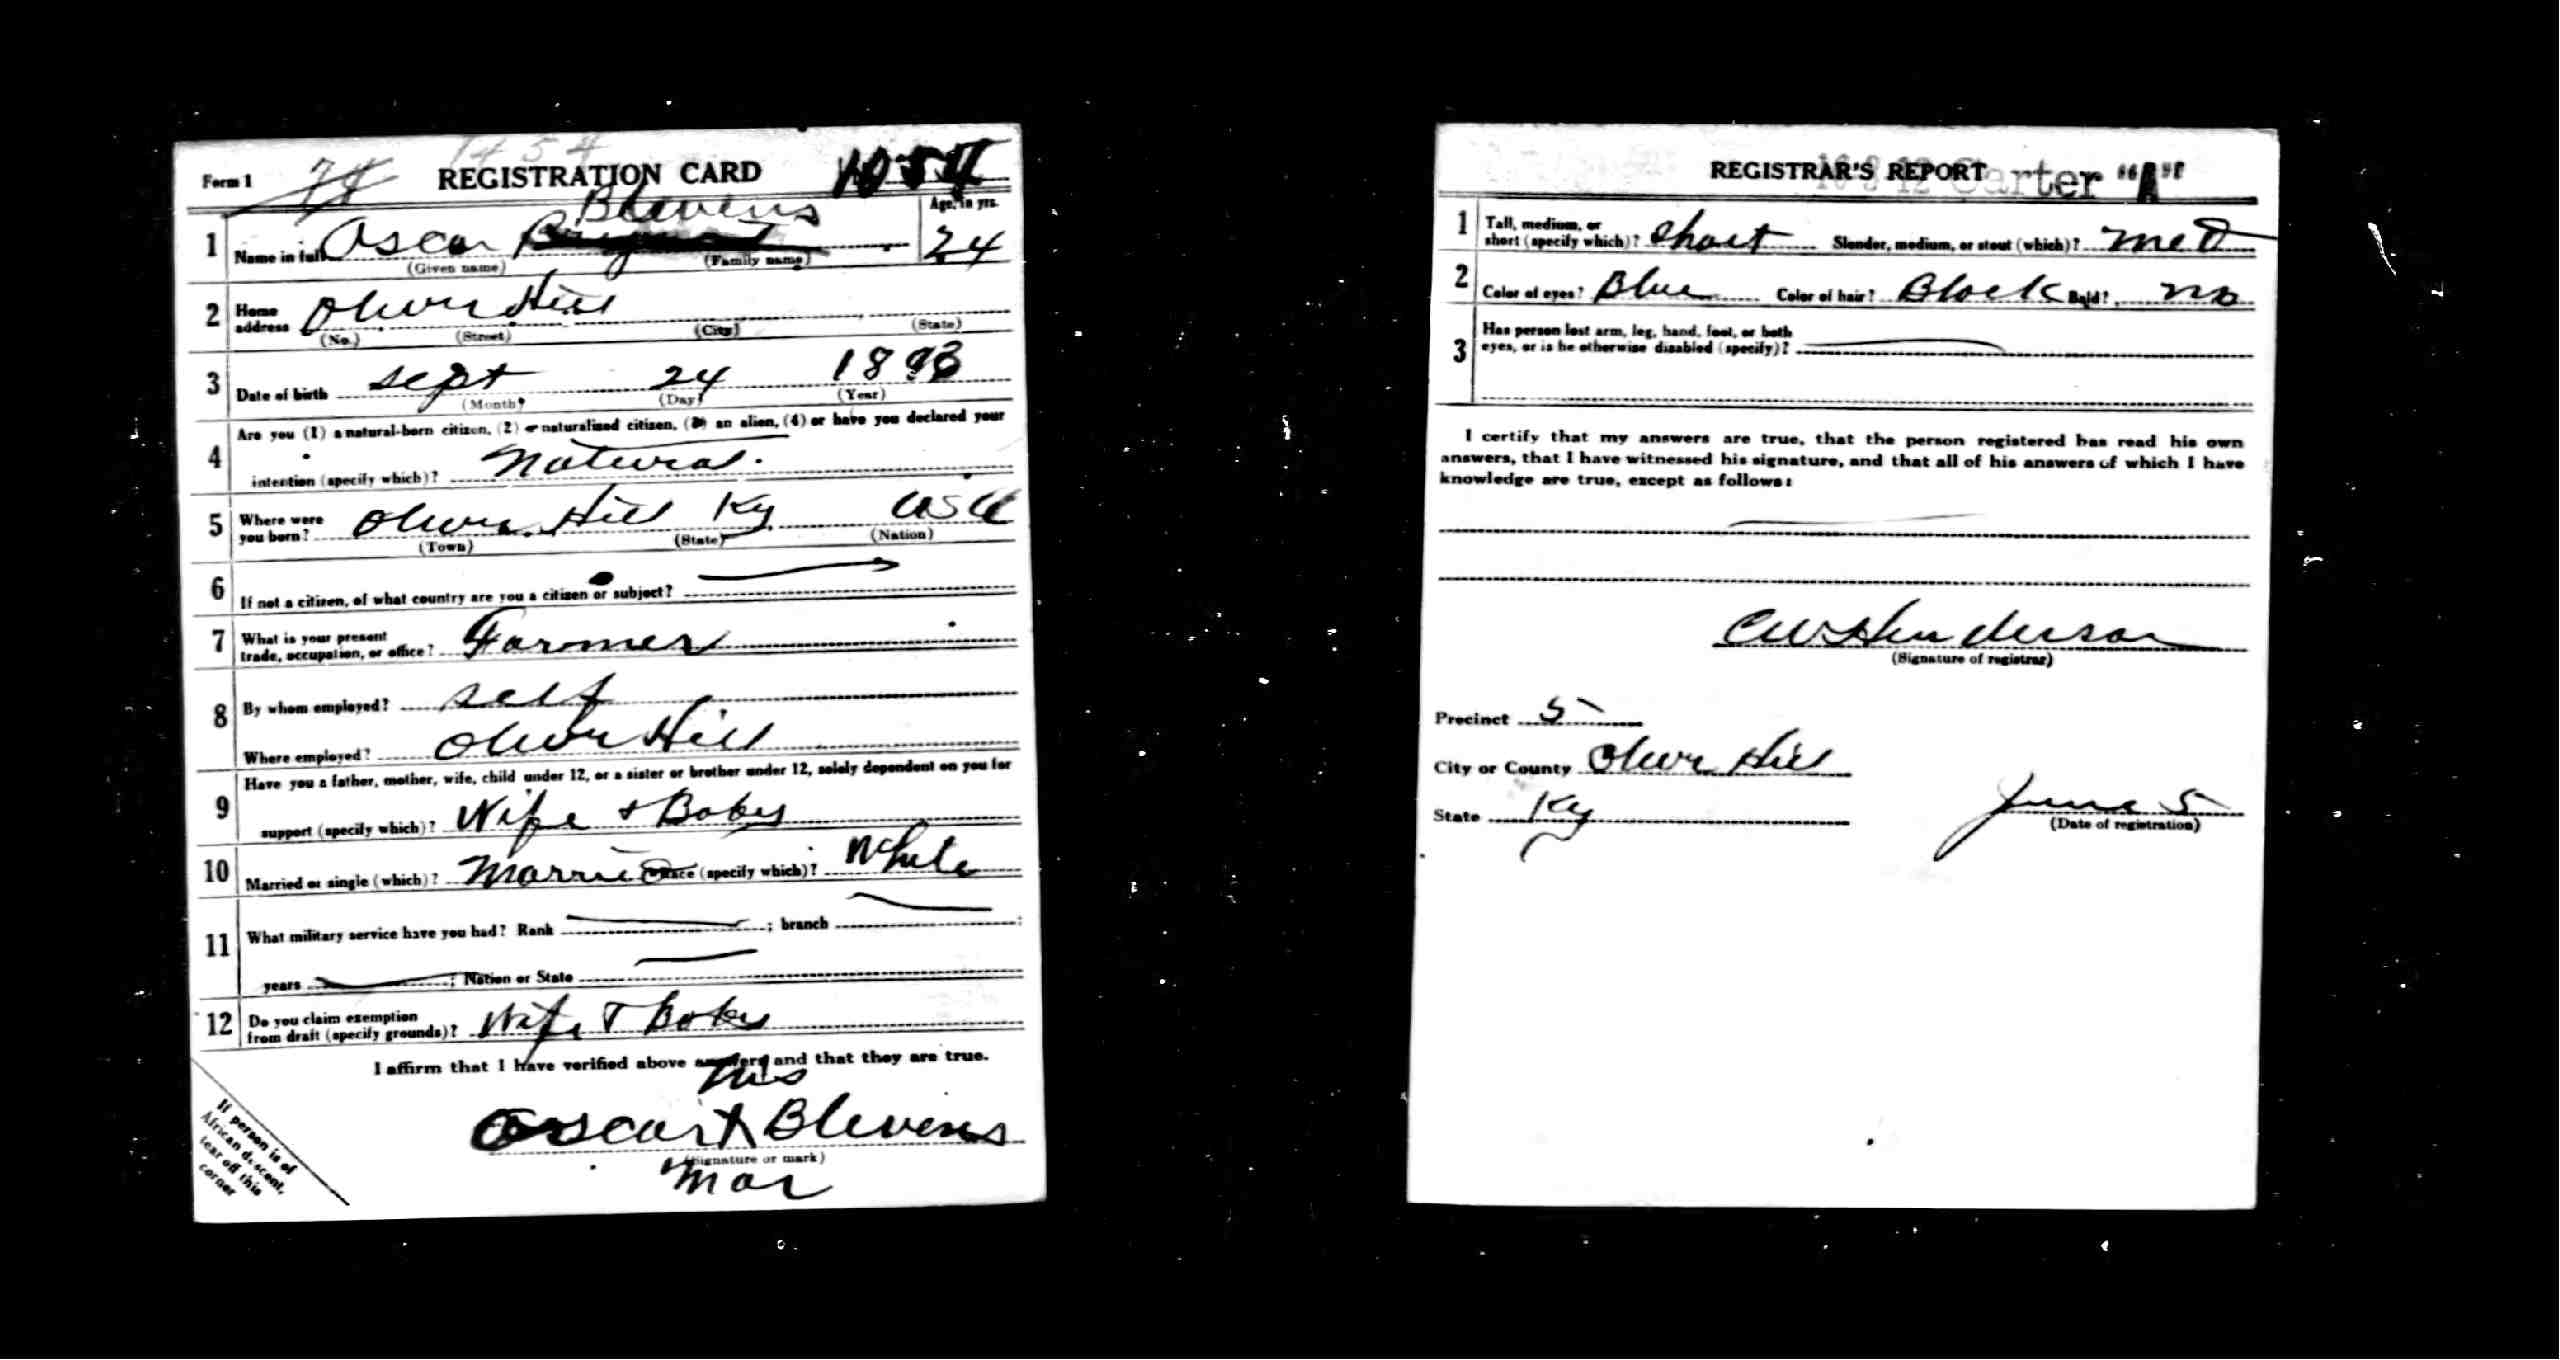 1454
Form 1 74 REGISTRATION CARD 1054
Blevens
1 Name in full Oscar (Given name) (Family name) Age, in yrs. 24
2 Home address Olive Hill (No.) (Street) (City) (State)
3 Date of birth Sept 24 1893 (Month) (Day) (Year)
4 Are you (1) a natural-born citizen, (2) a naturalized citizen, (3) an alien, (4) or have you declared your
intention (specify which)? Natural.
5 Where were you born? Olive Hill Ky USA (Town) (State) (Nation)
6 If not a citizen, of what country are you a citizen or subject?
7 What is your present trade, occupation, or office? Farmer
8 By whom employed? self
Where employed? Olive Hill
9 Have you a father, mother, wife, child under 12, or a sister or brother under 12, solely dependent on you for
support (specify which)? Wife + Baby
10 Married or single (which)? Married Race (specify which)? White
11 What military service have you had? Rank ; branch ;
years ; Nation or State
12 Do you claim exemption from draft (specify grounds)? Wife + Baby
I affirm that I have verified above answers and that they are true.
his
Oscar X Blevens
(Signature or mark)
Mar
If person is of
African descent,
tear off this
corner
REGISTRAR'S REPORT 16 3 12 Carter "A"
1 Tall, medium, or short (specify which)? Short Slender, medium, or stout (which)? Med
2 Color of eyes? Blue Color of hair? Black Bald? no
3 Has person lost arm, leg, hand, foot, or both
eyes, or is he otherwise disabled (specify)?
I certify that my answers are true, that the person registered has read his own
answers, that I have witnessed his signature, and that all of his answers of which I have
knowledge are true, except as follows:
CW Henderson
(Signature of registrar)
Precinct 5
City or County Olive Hill
State Ky June 5
(Date of registration)